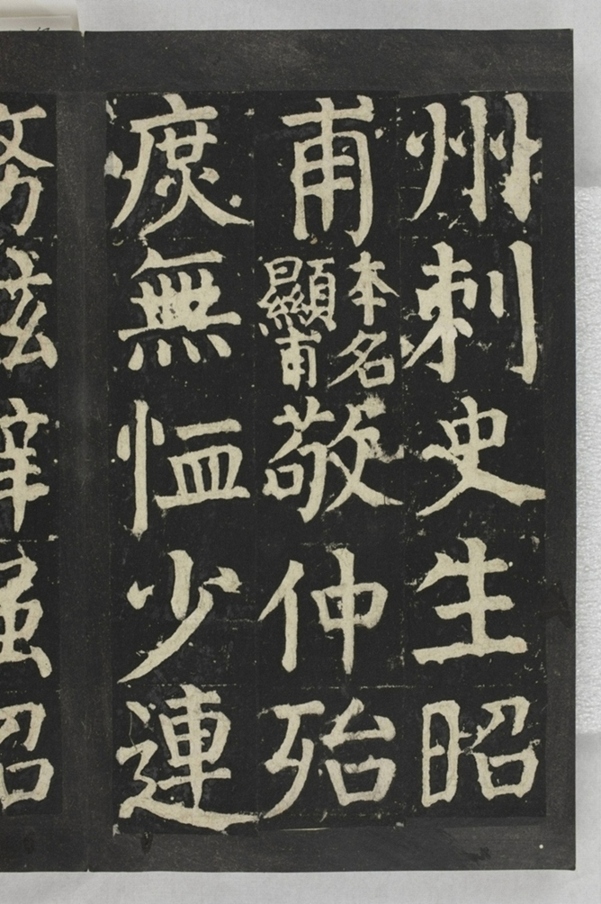 州刺史生昭
甫
本名
顯甫
敬仲殆
庶無恤少連